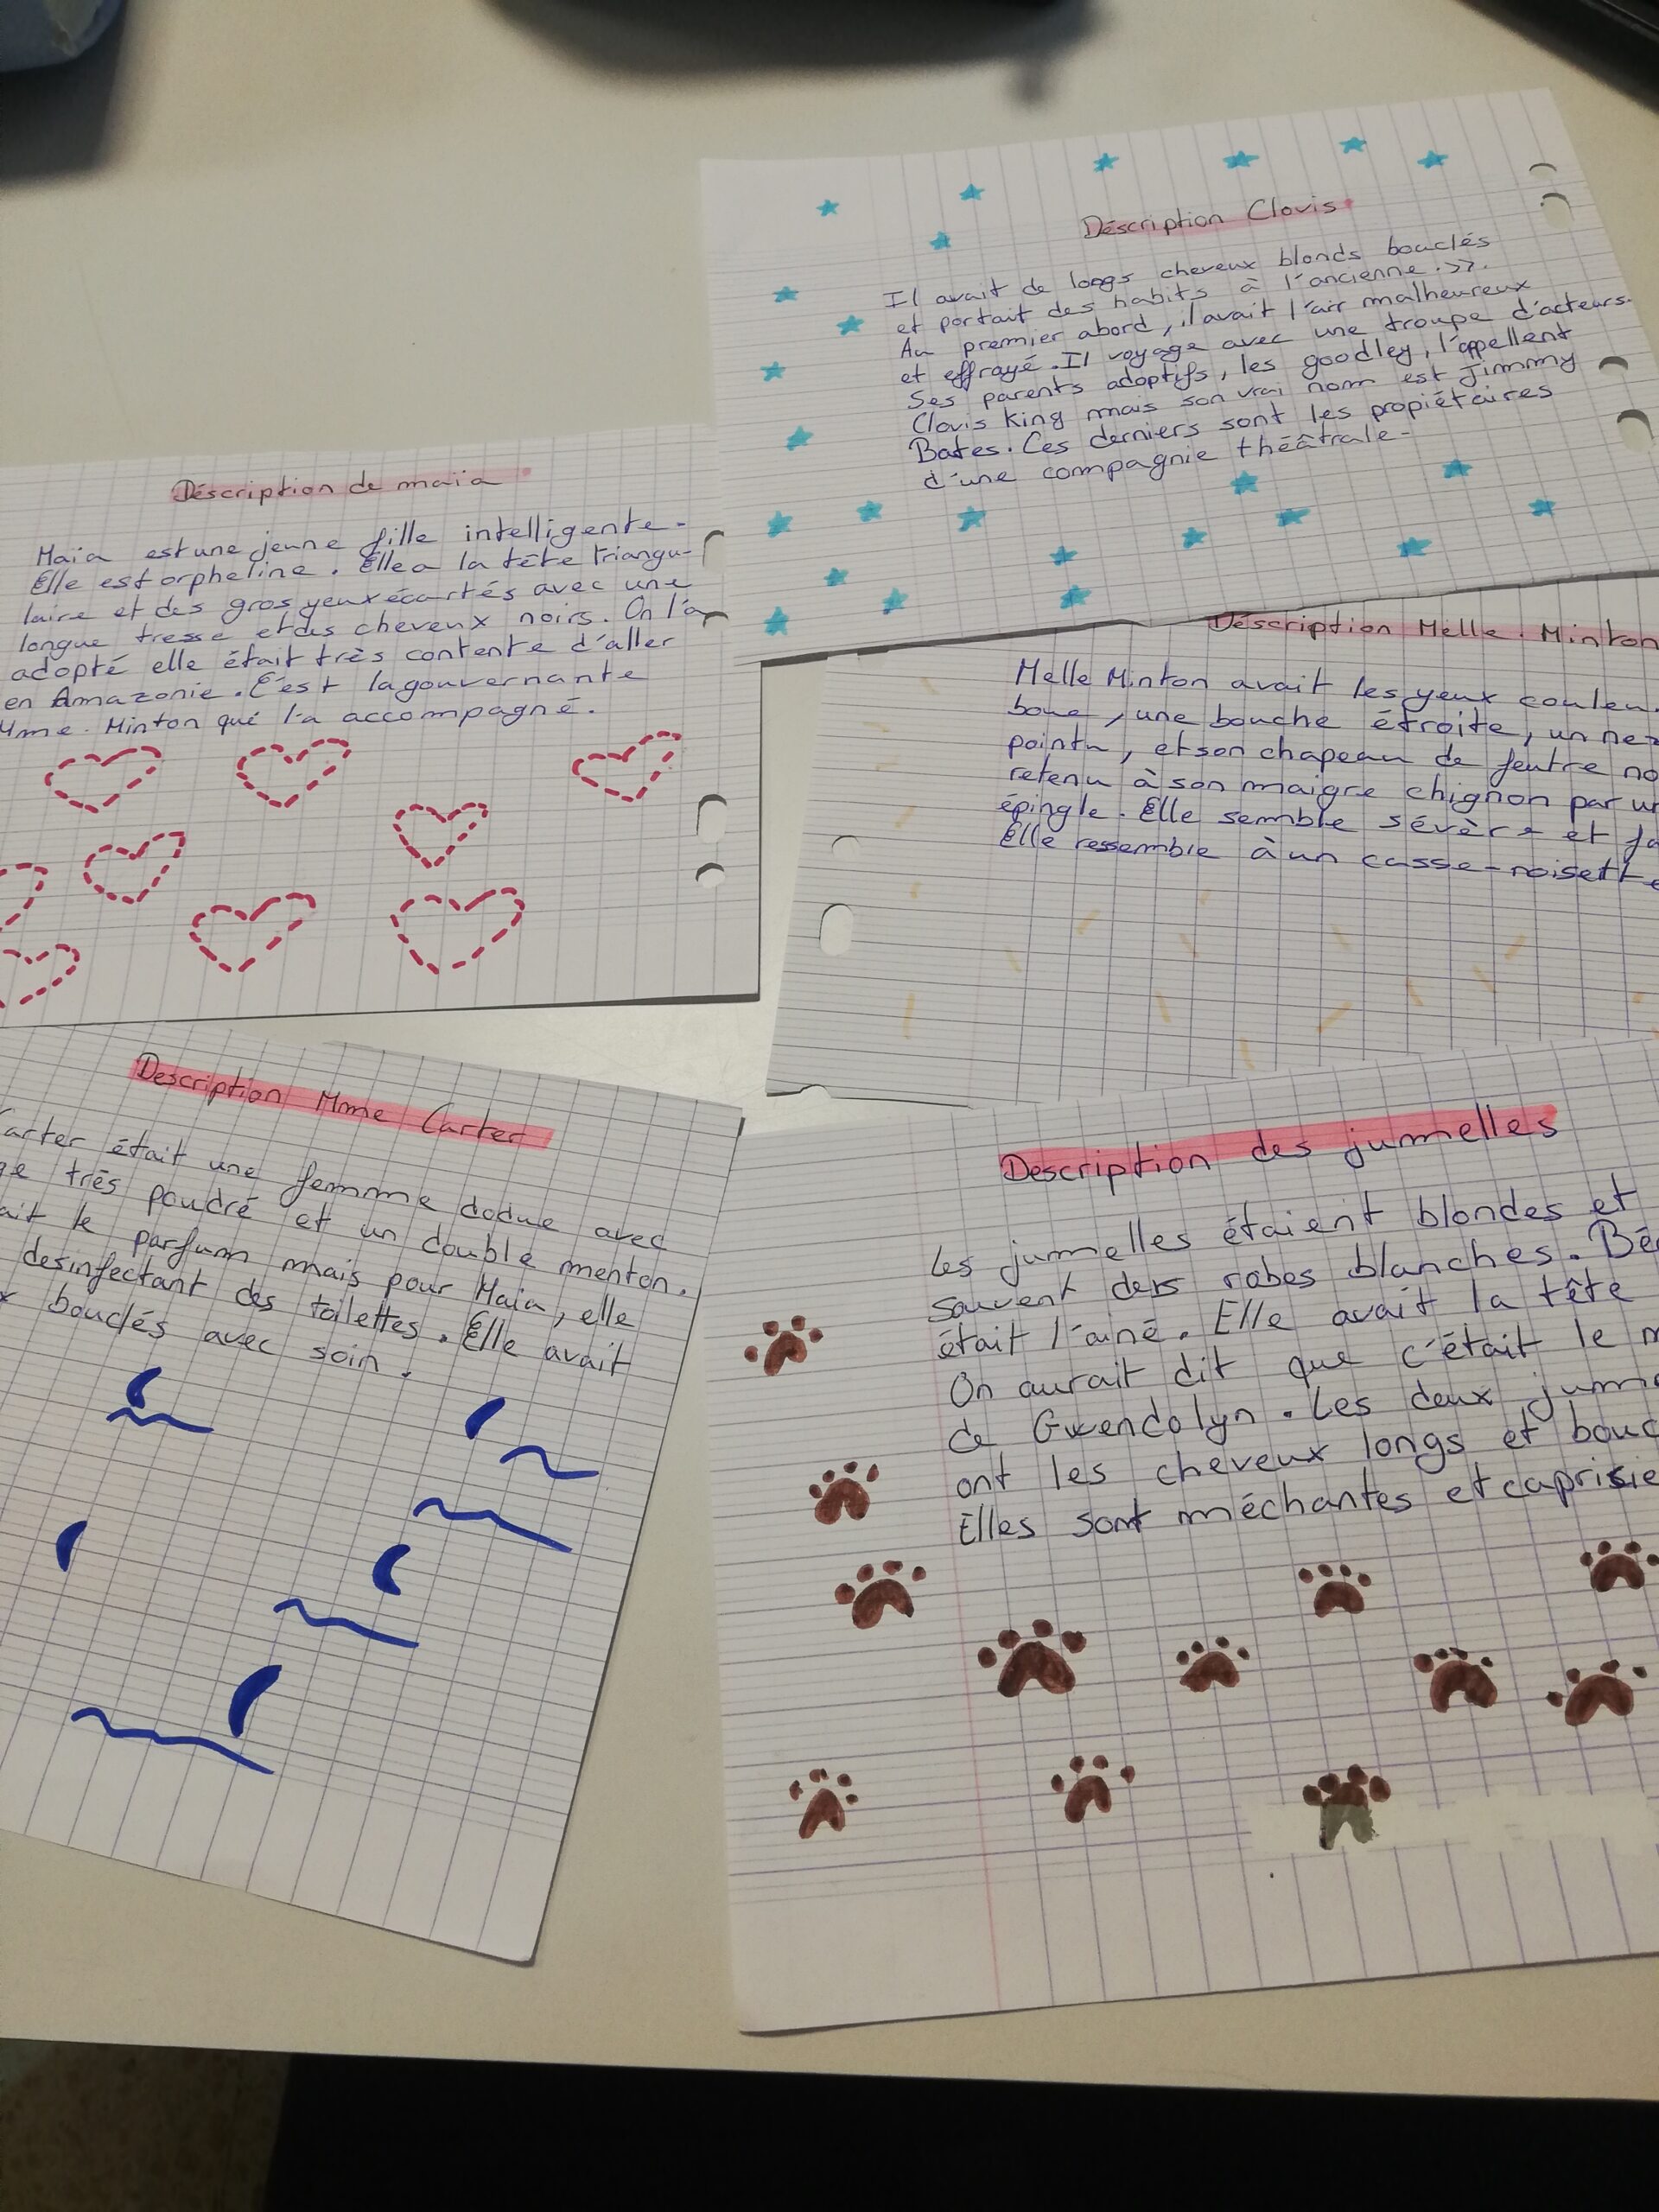 Déscription Clovis
Il avait de longs cheveux blonds bouclés
et portait des habits à l'ancienne.>>.
Au premier abord, il avait l'air malheureux
et effrayé. Il voyage avec une troupe d'acteurs.
Ses parents adoptifs, les goodley, l'appellent
Clovis King mais son vrai nom est Jimmy
Bates. Ces derniers sont les propiétaires
d'une compagnie théâtrale-
Déscription de maïa
Maia est une jeune fille intelligente-
Elle est orpheline. Elle a la tête triangu-
laire et des gros yeux écartés avec une
longue tresse et des cheveux noirs. On l'a
adopté elle était très contente d'aller
en Amazonie. C'est la gouvernante
Mme. Minton qui l'a accompagné.
Déscription Melle. Minton
Melle Minton avait les yeux couleu
boue, une bouche étroite, un nez
pointu, et son chapeau de feutre no
retenu à son maigre chignon par un
épingle. Elle semble sévère et fa
Elle ressemble à un casse-noisette
Description Mme Carter
Carter était une femme dodue avec
ge très poudré et un double menton.
ait le parfum mais pour Maia, elle
desinfectant des toilettes. Elle avait
x bouclés avec soin.
Description des jumelles
Les jumelles étaient blondes et
souvent des robes blanches. Bé
était l'ainé. Elle avait la tête
On aurait dit que c'était le m
de Gwendolyn. Les deux jume
ont les cheveux longs et bouc
Elles sont méchantes et caprisie